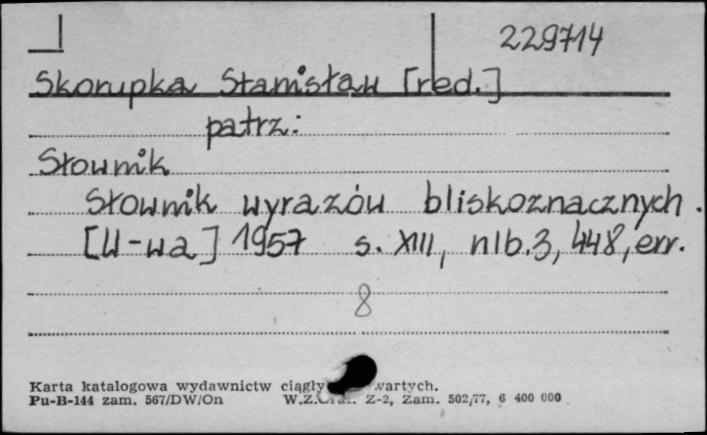 229714
Skorupka Stanisław [red.]
patrz:
Słownik
Słownik wyrazów bliskoznacznych.
[W-wa] 1957 s. XIII, nlb.3, 448, err.
8
Karta katalogowa wydawnictw
Pu-B-144 zam. 567/DW/On Z-2, Zam. 502/77, 6 400 000